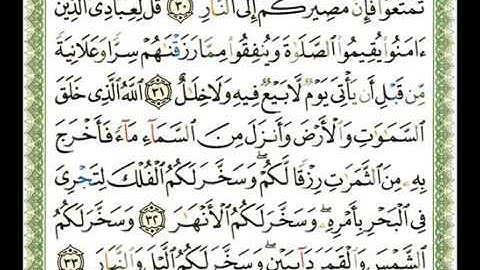 تَمَتَّعُوا۟ فَإِنَّ مَصِيرَكُمْ إِلَى ٱلنَّارِ ٣٠ قُل لِّعِبَادِىَ ٱلَّذِينَ
ءَامَنُوا۟ يُقِيمُوا۟ ٱلصَّلَوٰةَ وَيُنفِقُوا۟ مِمَّا رَزَقْنَٰهُمْ سِرًّا وَعَلَانِيَةً
مِّن قَبْلِ أَن يَأْتِىَ يَوْمٌ لَّا بَيْعٌ فِيهِ وَلَا خِلَٰلٌ ٣١ ٱللَّهُ ٱلَّذِى خَلَقَ
ٱلسَّمَٰوَٰتِ وَٱلْأَرْضَ وَأَنزَلَ مِنَ ٱلسَّمَآءِ مَآءً فَأَخْرَجَ
بِهِۦ مِنَ ٱلثَّمَرَٰتِ رِزْقًا لَّكُمْ ۖ وَسَخَّرَ لَكُمُ ٱلْفُلْكَ لِتَجْرِىَ
فِى ٱلْبَحْرِ بِأَمْرِهِۦ ۖ وَسَخَّرَ لَكُمُ ٱلْأَنْهَٰرَ ٣٢ وَسَخَّرَ لَكُمُ
ٱلشَّمْسَ وَٱلْقَمَرَ دَآئِبَيْنِ ۖ وَسَخَّرَ لَكُمُ ٱلَّيْلَ وَٱلنَّهَارَ ٣٣